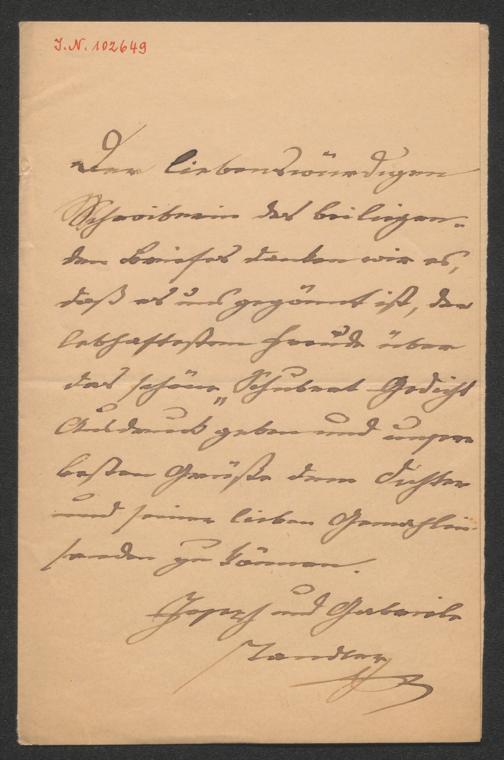 J.N. 102649
Der liebenswürdigen
Schreiberin des beiliegen-
den Briefes danken wir es,
daß es uns gegönnt ist, der
lebhaftesten Freude über
das schöne „Schubert Gedicht
Ausdruck geben und unsere
besten Grüße dem Dichter
und seiner lieben Gemahlin
senden zu können.
Josef und Gabriele